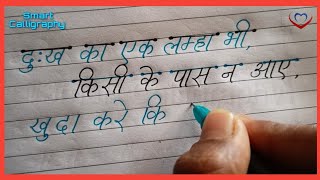 Smart
Calligraphy
दुःख का एक लम्हा भी,
किसी के पास न आए,
खुदा करे कि